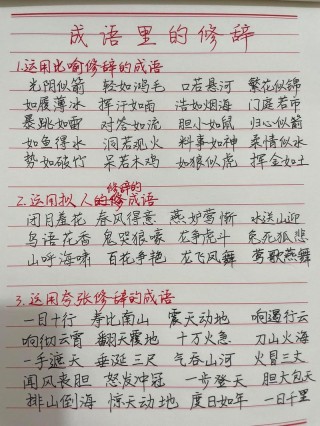 成语里的修辞
1.运用比喻修辞的成语
光阴似箭 轻如鸿毛 口若悬河 繁花似锦
如履薄冰 挥汗如雨 浩如烟海 门庭若市
暴跳如雷 对答如流 胆小如鼠 归心似箭
如鱼得水 洞若观火 料事如神 柔情似水
势如破竹 呆若木鸡 如狼似虎 挥金如土
修辞的
2.运用拟人的成语
闭月羞花 春风得意 燕妒莺惭 水送山迎
鸟语花香 鬼哭狼嚎 龙争虎斗 兔死狐悲
山呼海啸 百花争艳 龙飞凤舞 莺歌燕舞
3.运用夸张修辞的成语
一目十行 寿比南山 震天动地 响遏行云
响彻云霄 翻天覆地 十万火急 刀山火海
一手遮天 垂涎三尺 气吞山河 火冒三丈
闻风丧胆 怒发冲冠 一步登天 胆大包天
排山倒海 惊天动地 度日如年 一日千里